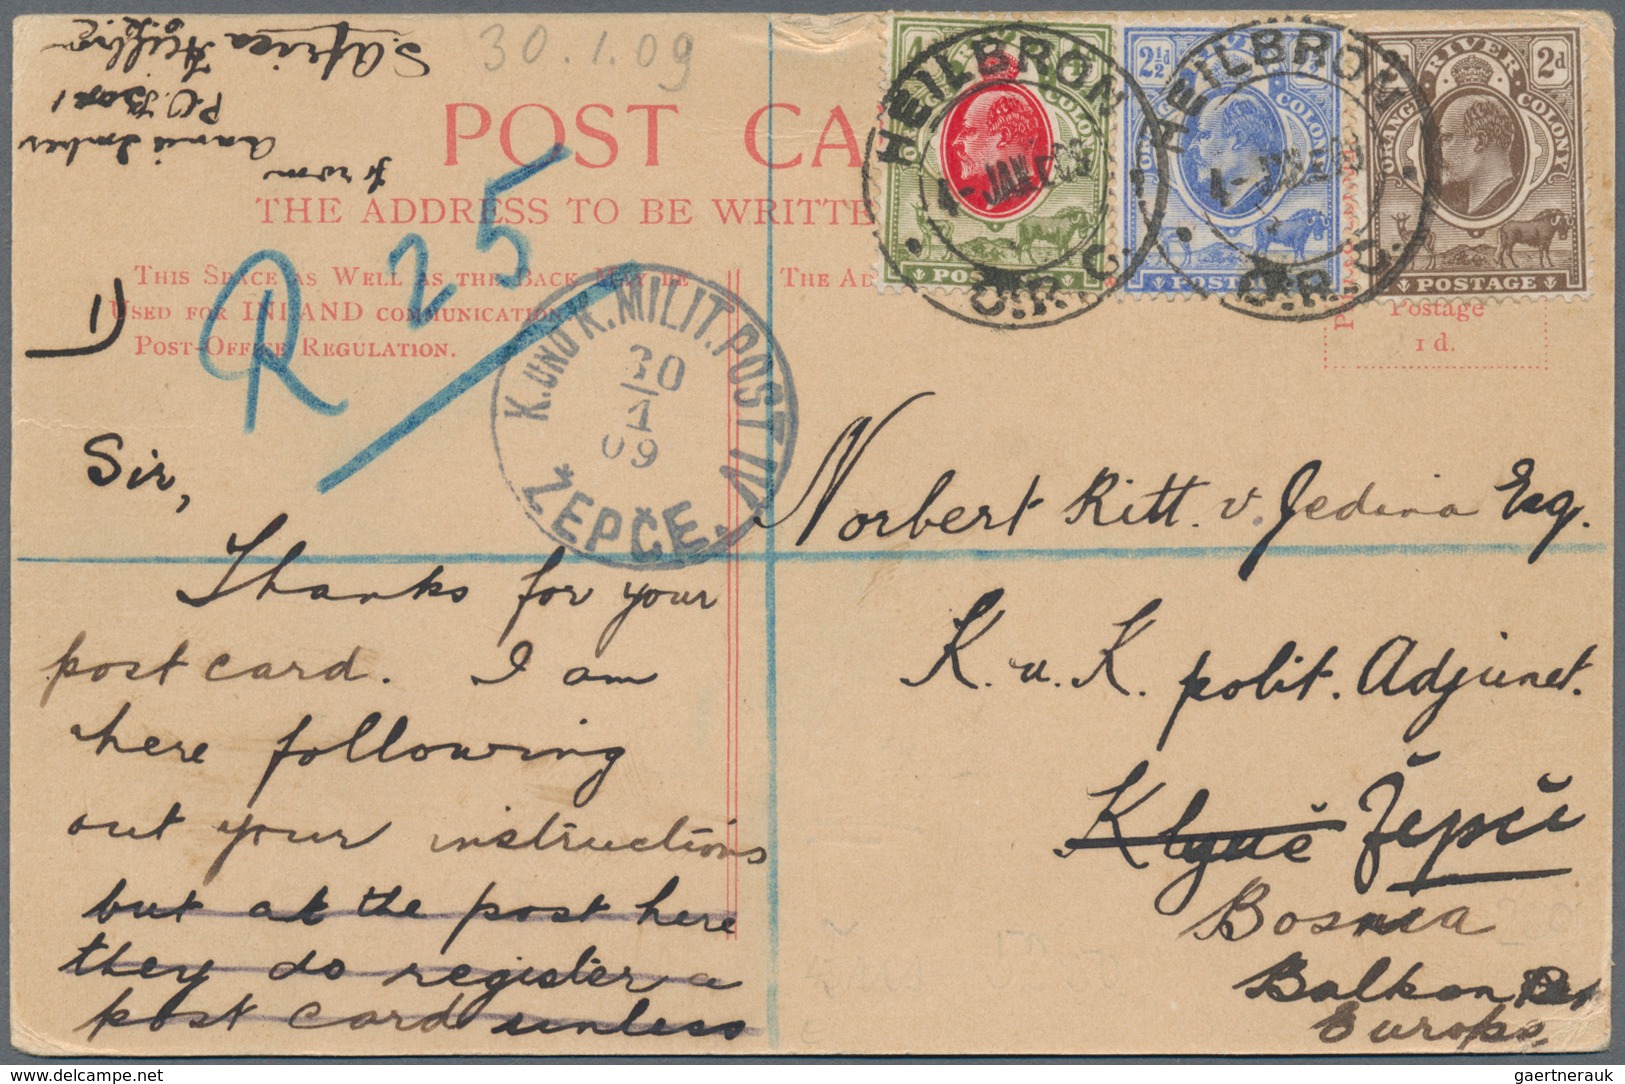 from
Annie
P.O. Box 1
S. Africa Heilbron
O.R.
30.1.09
POST CA
THE ADDRESS TO BE WRITTE
This Space as Well as the Back May be
Used for INLAND communication.
Post-Office Regulation.
The Ad
Postage
1 d.
R 25
1)
HEILBRON
4-JAN 09
O.R.C.
HEILBRON
4-JAN 09
O.R.C.
4d
RIVER
COLONY
POSTAGE
2½d
RIVER
COLONY
POSTAGE
2d
ORANGE RIVER COLONY
POSTAGE
K. UND K. MILIT. POST IV
30
1
09
ŽEPČE
Norbert Ritt. v. Jedina Esq.
K. u. K. polit. Adjunct.
Klyuč Žepče
Bosnia
Balkan
Europe.
Sir,
Thanks for your
post card. I am
here following
out your instructions
but at the post here
they do register a
post card unless
gaertnerauk